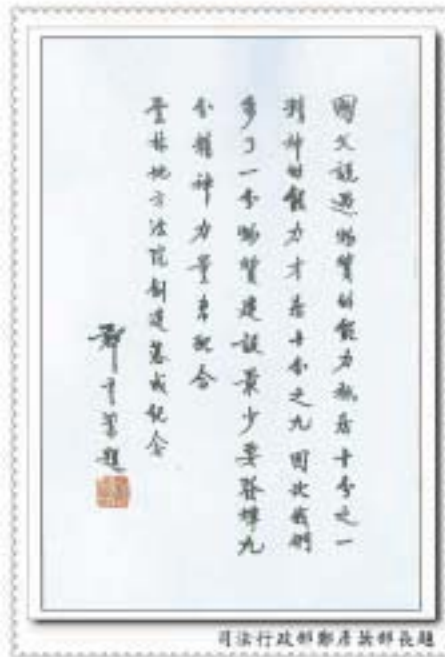 國父說過物質的能力祇居十分之一
精神的能力才居十分之九因此我們
多了一分物質建設最少要發揮九
分精神力量來配合
雲林地方法院創建落成紀念
鄭彥棻題
司法行政部鄭彥棻部長題